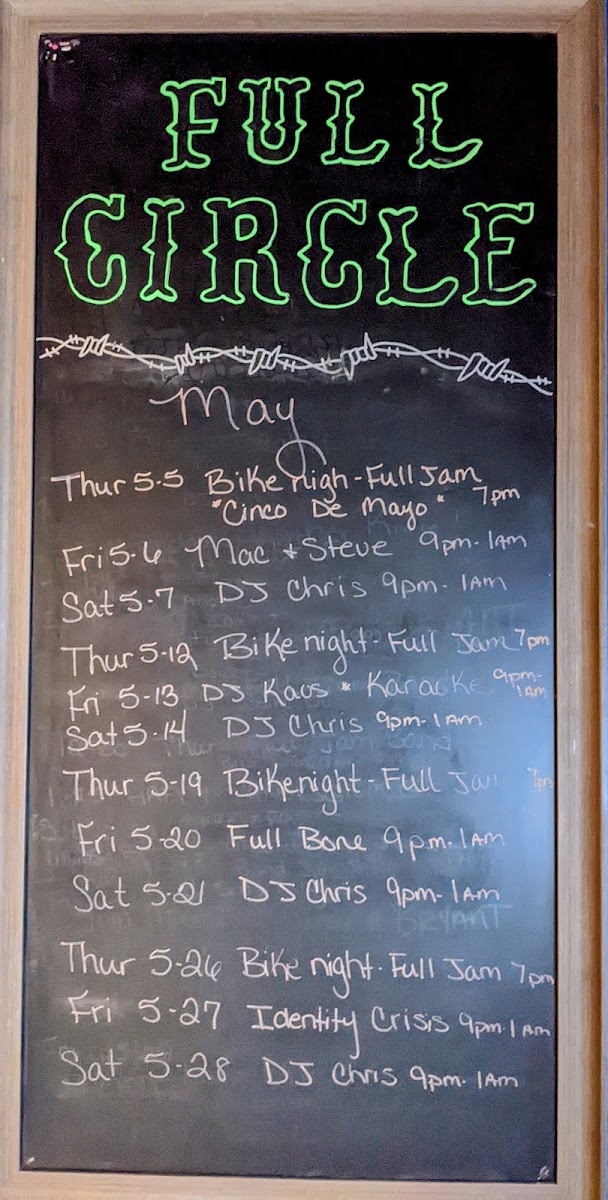 FULL
CIRCLE
May
Thur 5-5 Bike nigh - Full Jam
"Cinco De Mayo" 7pm
Fri 5-6 Mac & Steve 9pm-1Am
Sat 5-7 DJ Chris 9pm-1Am
Thur 5-12 Bike night - Full Jam 7pm
Fri 5-13 DJ Kaos * Karaoke 9pm-1am
Sat 5-14 DJ Chris 9pm-1Am
Thur 5-19 Bikenight - Full Ja 7pm
Fri 5-20 Full Bone 9pm-1Am
Sat 5-21 DJ Chris 9pm-1Am
BRYANT
Thur 5-26 Bike night - Full Jam 7pm
Fri 5-27 Identity Crisis 9pm-1Am
Sat 5-28 DJ Chris 9pm-1Am